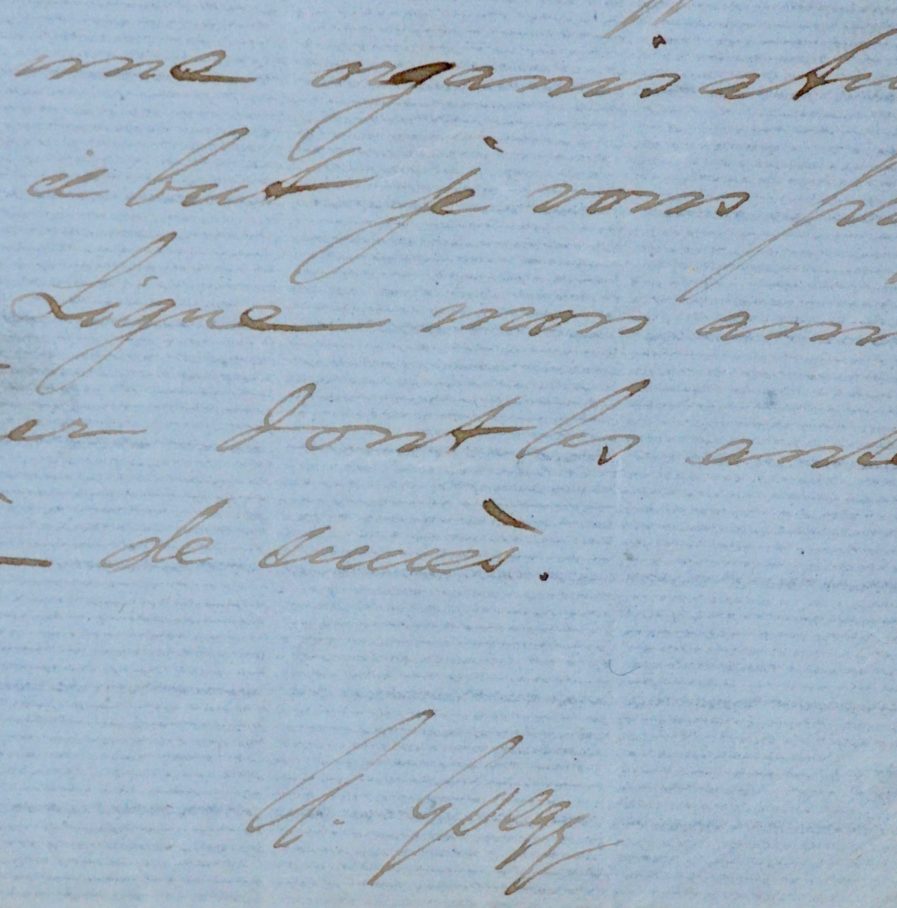 une organisatio
ce but je vous pr
Ligue mon ami
er dont les anté
de succès.
A. Goegg